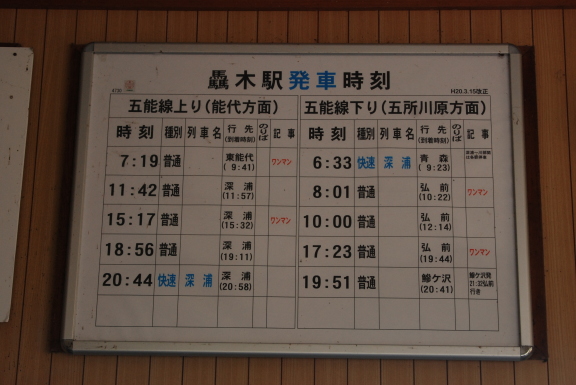 驫木駅発車時刻
H20.3.15改正
五能線上り(能代方面) 五能線下り(五所川原方面)
時刻 種別 列車名 行先(到着時刻) のりば 記事 時刻 種別 列車名 行先(到着時刻) のりば 記事
7:19 普通 東能代(9:41) ワンマン 6:33 快速 深浦 青森(9:23)
11:42 普通 深浦(11:57) 8:01 普通 弘前(10:22) ワンマン
15:17 普通 深浦(15:32) ワンマン 10:00 普通 弘前(12:14)
18:56 普通 深浦(19:11) 17:23 普通 弘前(19:44) ワンマン
20:44 快速 深浦 深浦(20:58) 19:51 普通 鰺ケ沢(20:41) 鰺ケ沢発21:32弘前行き